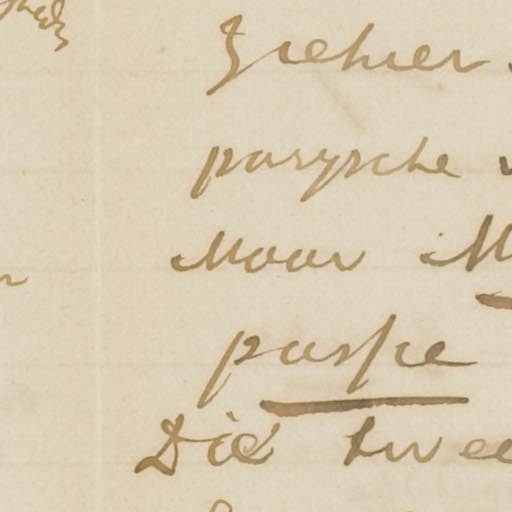 Ziehier
parysche
Maar M
passie
Die twee